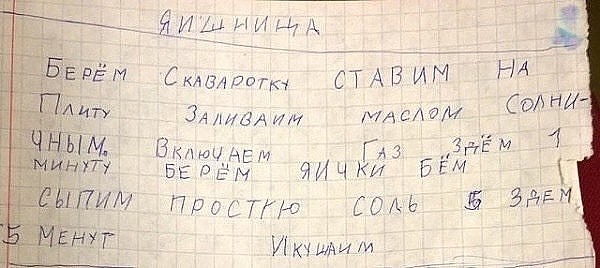 ЯИШНИЦА
БЕРЁМ СКАВАРОТКУ СТАВИМ НА
ПЛИТУ ЗАЛИВАИМ МАСЛОМ СОЛНИ-
ЧНЫМ. ВКЛЮЧАЕМ ГАЗ ЗДЁМ 1
МИНУТУ БЕРЁМ ЯИЧКИ БЁМ
СЫПИМ ПРОСТКЮ СОЛЬ ЗДЕМ
5 МЕНУТ ИКУШАИМ